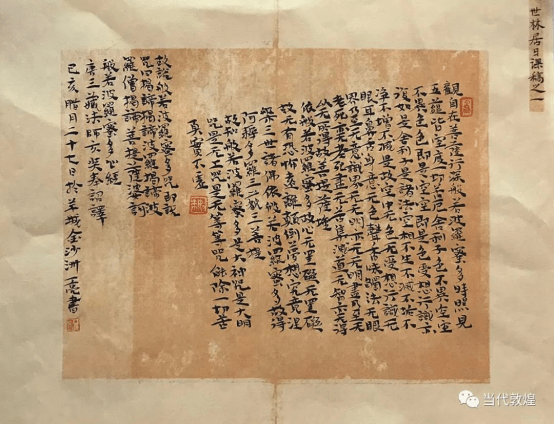 世林居日課稿之一
觀自在菩薩行深般若波羅蜜多時照見
五蘊皆空度一切苦厄舍利子色不異空空
不異色色即是空空即是色受想行識亦
復如是舍利子是諸法空相不生不滅不垢不
淨不增不減是故空中无色无受想行識无
眼耳鼻舌身意无色聲香味觸法无眼
界乃至无意識界无无明亦无无明盡乃至无
老死亦无老死盡无苦集滅道无智亦无得
以无所得故菩提薩埵
依般若波羅蜜多故心无罣礙无罣礙
故无有恐怖遠離顛倒夢想究竟涅
槃三世諸佛依般若波羅蜜多故得
阿耨多羅三藐三菩提
故知般若波羅蜜多是大神咒是大明
咒是无上咒是无等等咒能除一切苦
真實不虛
故說般若波羅蜜多咒即說
咒曰揭諦揭諦波羅揭諦波
羅僧揭諦菩提薩婆訶
般若波羅蜜多心經
唐三藏法師玄奘奉詔譯
己亥腊月二十七日於羊城金沙洲亮書
当代敦煌